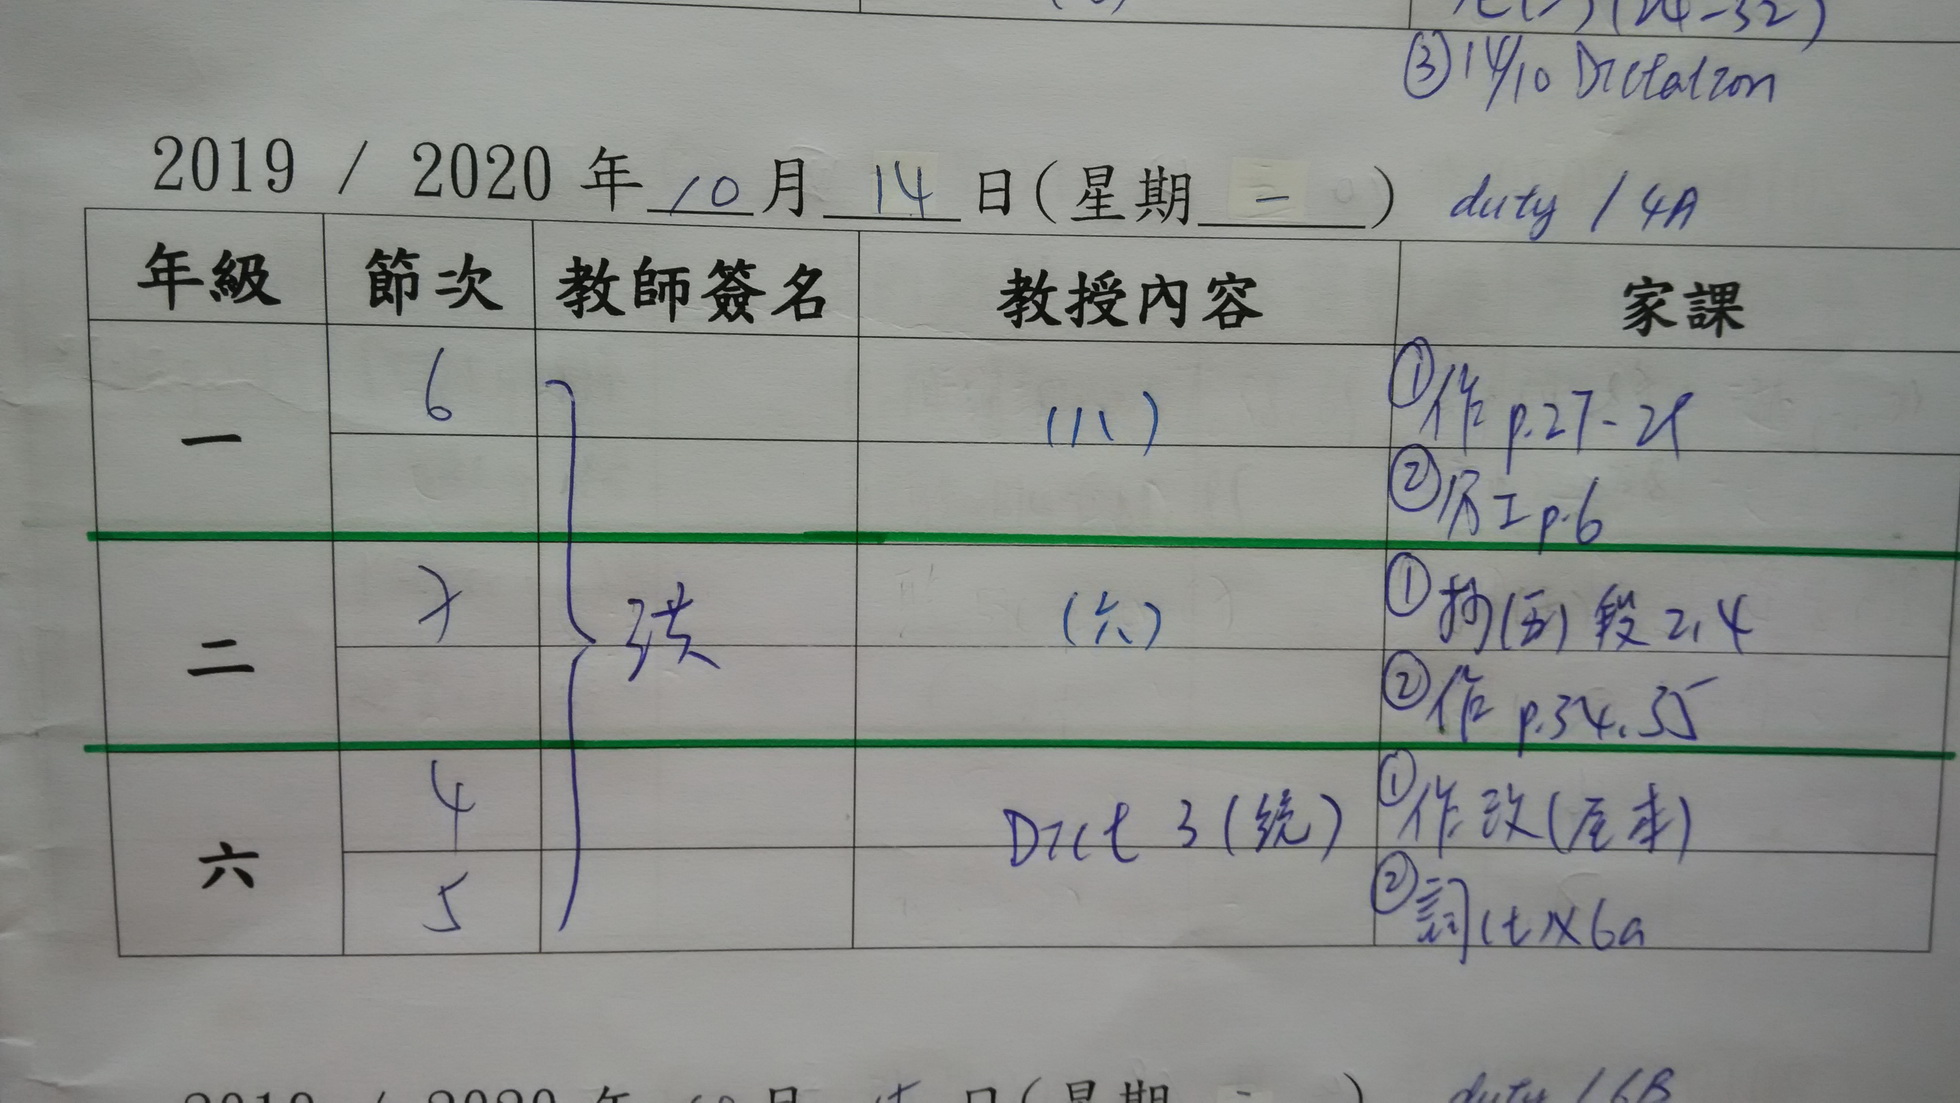 (24-32)
③14/10 Dictation
2019 / 2020 年 10 月 14 日(星期 一 )
duty / 4A
年級 節次 教師簽名 教授內容 家課
一 6 (八) ①作 p.27-28
② p.6
二 7 (六) ①抄(五) 段 2,4
②作 p.34,35
六 4 Dict 3 (統) ①作改
5 ②詞
2019 / 2020 年 10 月 15 日(星期 二 )
duty / 6B